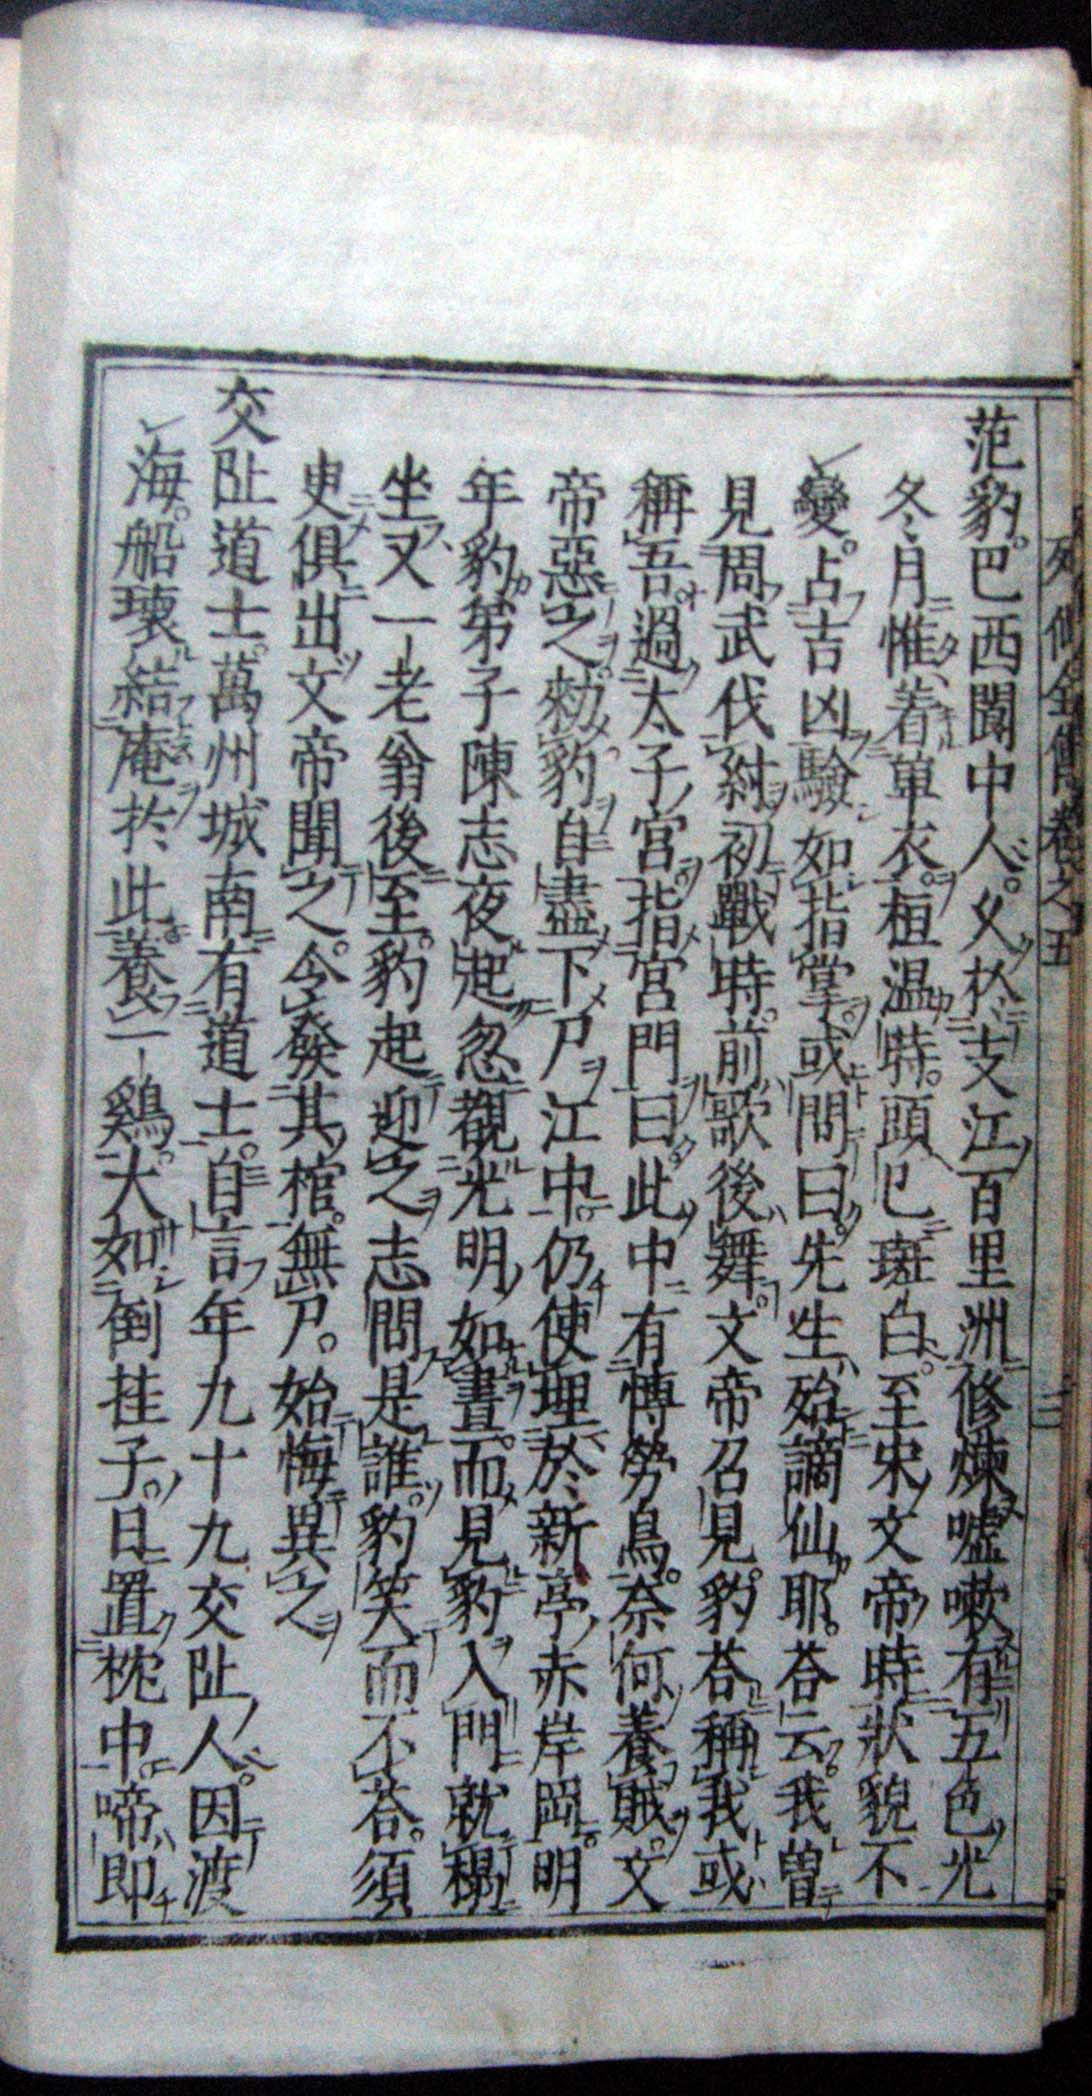 范豹。巴西閬中人。父於支江百里洲修煉噓嗽有五色光
冬月惟着單衣。桓溫時。頭已斑白。至宋文帝時狀貌不
變。占吉凶驗如指掌。或問曰。先生殆謫仙耶。荅云。我曽
見周武伐紂初戰時。前歌後舞。文帝召見。豹荅稱我或
稱吾。過太子宮。指宮門曰。此中有愽勞鳥。奈何養賊。文
帝惡之。勑豹自盡。下尸江中。仍使埋於新亭赤岸岡。明
年豹弟子陳志夜起。忽覩光明如晝。而見豹入門就榻
坐又一老翁後至。豹起迎之。志問是誰。豹笑而不荅。須
臾俱出。文帝聞之。令發其棺。無尸。始悔異之
交阯道士。萬州城南有道士。自言年九十九交阯人。因渡
海。船壞。結庵於此。養一鷄。大如倒挂子。日置枕中。啼即